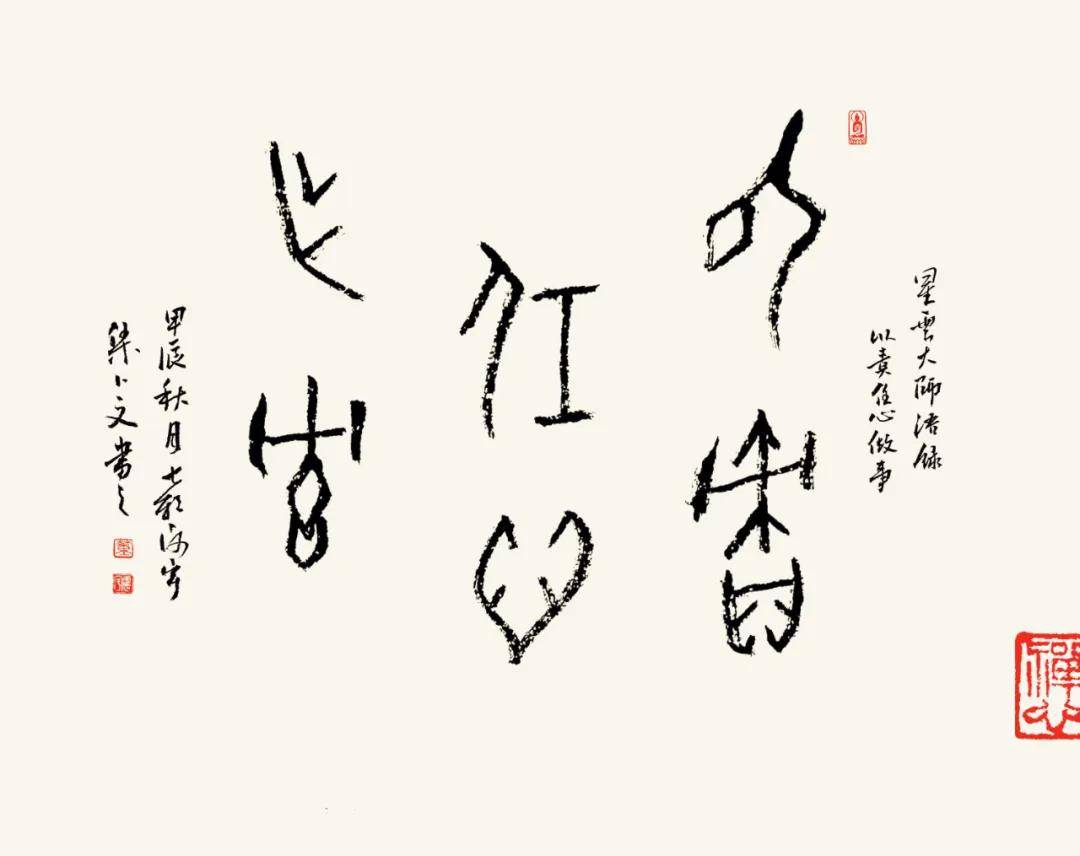 星雲大師語錄
以責任心做事
以責
任心
乍事
甲辰秋月
集卜文書之
禪心